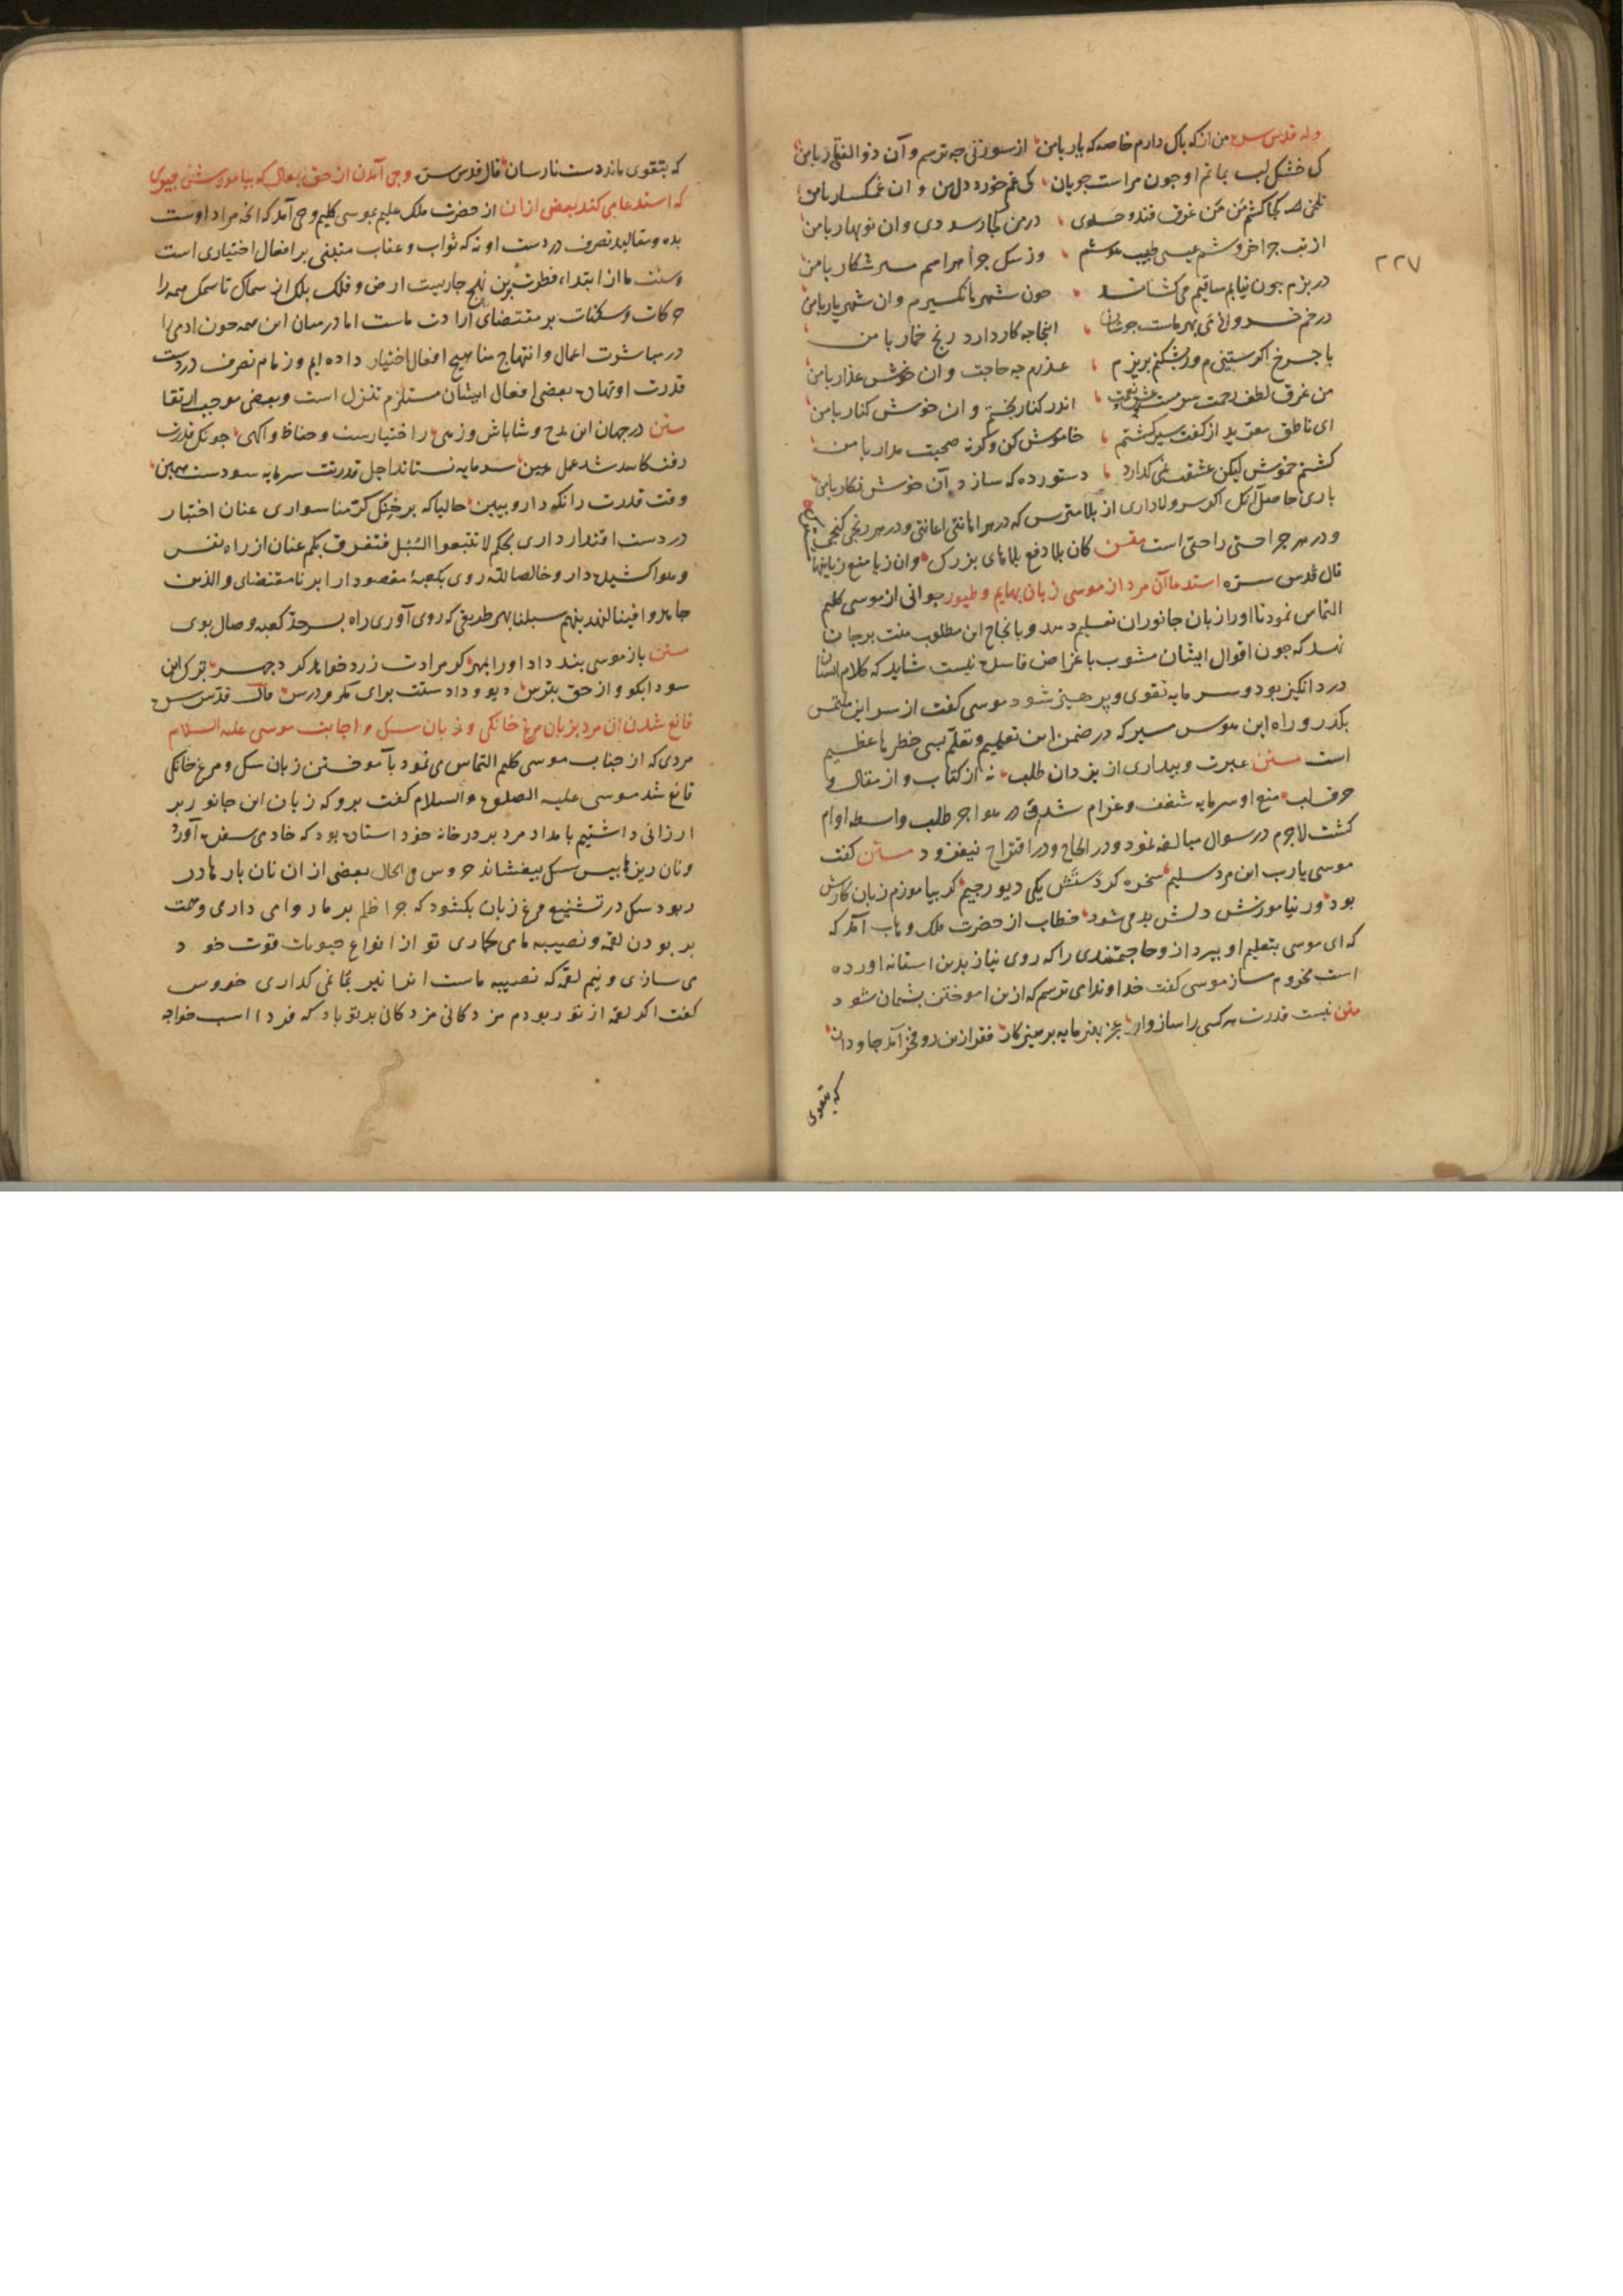 وله قدس سره من از که باک دارم خاصه که یار با من از سوزنی چه ترسم و آن ذوالفقار با من
کی خشک لب بمانم او جون مراست جویان کی غم خورد دل من و ان غمکسار با من
تلخی کجا کشم من من غرق قند و حلوی در من کجا رسد دی و ان نوبهار با من
از تب جرا خروشم عیسی طبیب هوشم وز سک جرا هراسم میر شکار با من
در بزم جون نیایم ساقیم می کشاند جون شهرها نگیرم و ان شهریار با من
در خم خسروانی می بهر ماست جوشان اینجا چه کار دارد رنج خمار با من
با جرخ اکر ستیزم ور بشکنم بریزم عذرم چه حاجت و ان خوش عذار با من
من غرق لطف رحمت سرمست عشق نعمت اندر کنار بختم و ان خوش کنار با من
ای ناطق معربد از کفت سیر کشتم خاموش کن و کرنه صحبت مدار با من
کشتم خوش لیکن عشقت نمی کذارد دستور ده که سازد آن خوش نکار با من
باری حاصل آنکه اکر سر ولاداری از بلا مترس که در هر اهانتی اعانتی و در هر رنجی کنجی
و در هر جراحتی راحتی است متن کان بلا دفع بلاهای بزرک وان زیان منع زیانها
قال قدس سره استدعا آن مرد از موسی زبان بهایم و طیور جوانی از موسی کلیم
التماس نمود تا او را زبان جانوران تعلیم دهد و بانجاح این مطلوب منت بر جان
نهد که جون اقوال ایشان مشوب باغراض فاسده نیست شاید که کلام ایشان
درد انکیز بود و سرمایه تقوی و پرهیز شود موسی کفت از سر این ملتمس
بکذر و راه این هوس مسپر که در ضمن این تعلیم و تعلم بسی خطرها عظیم
است متن عبرت و بیداری از یزدان طلب نه از کتاب و از مقال و
حرف لب منع او سرمایه شغف و غرام شد و در هواجر طلب واسطه اوام
کشت لاجرم در سوال مبالغه نمود و در الحاح و در اقتراح نیفزود متن کفت
موسی یارب این مرد سلیم سخره کردستش یکی دیو رجیم کر بیاموزم زبان کارش
بود ور نیاموزنش دلش بد می شود خطاب از حضرت ملک وهاب آمد که
که ای موسی بتعلیم او بپرداز و حاجتمندی را که روی نیاز بدین استانه اورده
است محروم مساز موسی کفت خداوندا می ترسم که ازین اموختن پشیمان شود
متن نیست قدرت هر کسی را سازوار عجز بهتر مایه پرهیزکار فقر ازین رو فخر آمد جاودان
که بتقوی
٢٢٧
که بتقوی ماند دست نارسان قال قدس سره وحی آمدن از حق تعالی که بیاموزش چیزی
که استدعا می کند بعضی از ان از حضرت ملک علیم بموسی کلیم وحی آمد که انچه مراد اوست
بده و مقالید تصرف در دست او نه که ثواب و عقاب مبتنی بر افعال اختیاری است
و سنت ما از ابتداء فطرت برین نهج جاریست ارض و فلک بلک از سماک تا سمک همه را
حرکات و سکنات بر مقتضای ارادت ماست اما درمیان این همه جون ادمی را
در مباشرت اعمال و انتهاج مناهیج افعال اختیار داده ایم و زمام تصرف در دست
قدرت او نهاده بعضی افعال ایشان مستلزم تنزل است و بعضی موجب ارتقا
متن در جهان این مدح و شاباش و زهی ز اختیارست و حفاظ و آکهی جونک قدرت
رفت کاسد شد عمل هین سرمایه نستاند اجل قدرتت سرمایه سودست هین
وقت قدرت را نکه دار و ببین حالیا که بر خنک کرمنا سواری عنان اختیار
در دست اقتدار داری بحکم لا تتبعوا السبل فتفرق بکم عنان از راه نفس
و هوا کشیده دار و خالصا لله روی بکعبه مقصود ار ابر نا مقتضای والذین
جاهدوا فینا لنهدینهم سبلنا بهر طریقی که روی آوری راه بسرحد کعبه وصال بوی
متن باز موسی بند داد او را بمهر کر مرادت زرد خواهد کرد چهر ترک این
سودا بکو و از حق بترس دیو دادستت برای مکر درس قال قدس سره
قانع شدن ان مرد بزبان مرغ خانکی و زبان سک و اجابت موسی علیه السلام
مردی که از جناب موسی کلیم التماس می نمود بآموختن زبان سک و مرغ خانکی
قانع شد موسی علیه الصلوة والسلام کفت برو که زبان این جانور بر
ارزانی داشتیم بامداد مرد بر در خانه خود استاده بود که خادمی سفره آورد
و نان ریزها پیش سک بیفشاند خروس فی الحال بعضی از ان نان بارها در
ربود سک در تشنیع مرغ زبان بکشود که جرا ظلم بر ما روا می داری و همت
بر بودن لقمه و نصیبه ما می کماری تو از انواع حبوبات قوت خود
می سازی و نیم لقمه که نصیبه ماست انرا نیز بما نمی کذاری خروس
کفت اکر لقمه از تو ربودم مزدکانی مزدکانی بر تو باد که فردا اسب خواجه